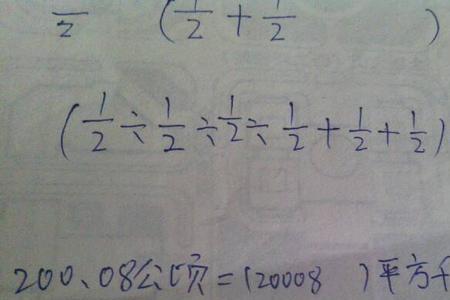 1/2 (1/2 + 1/2 )
(1/2 ÷ 1/2 ÷ 1/2 ÷ 1/2 + 1/2 + 1/2)
200.08公顷=(20008 )平方千